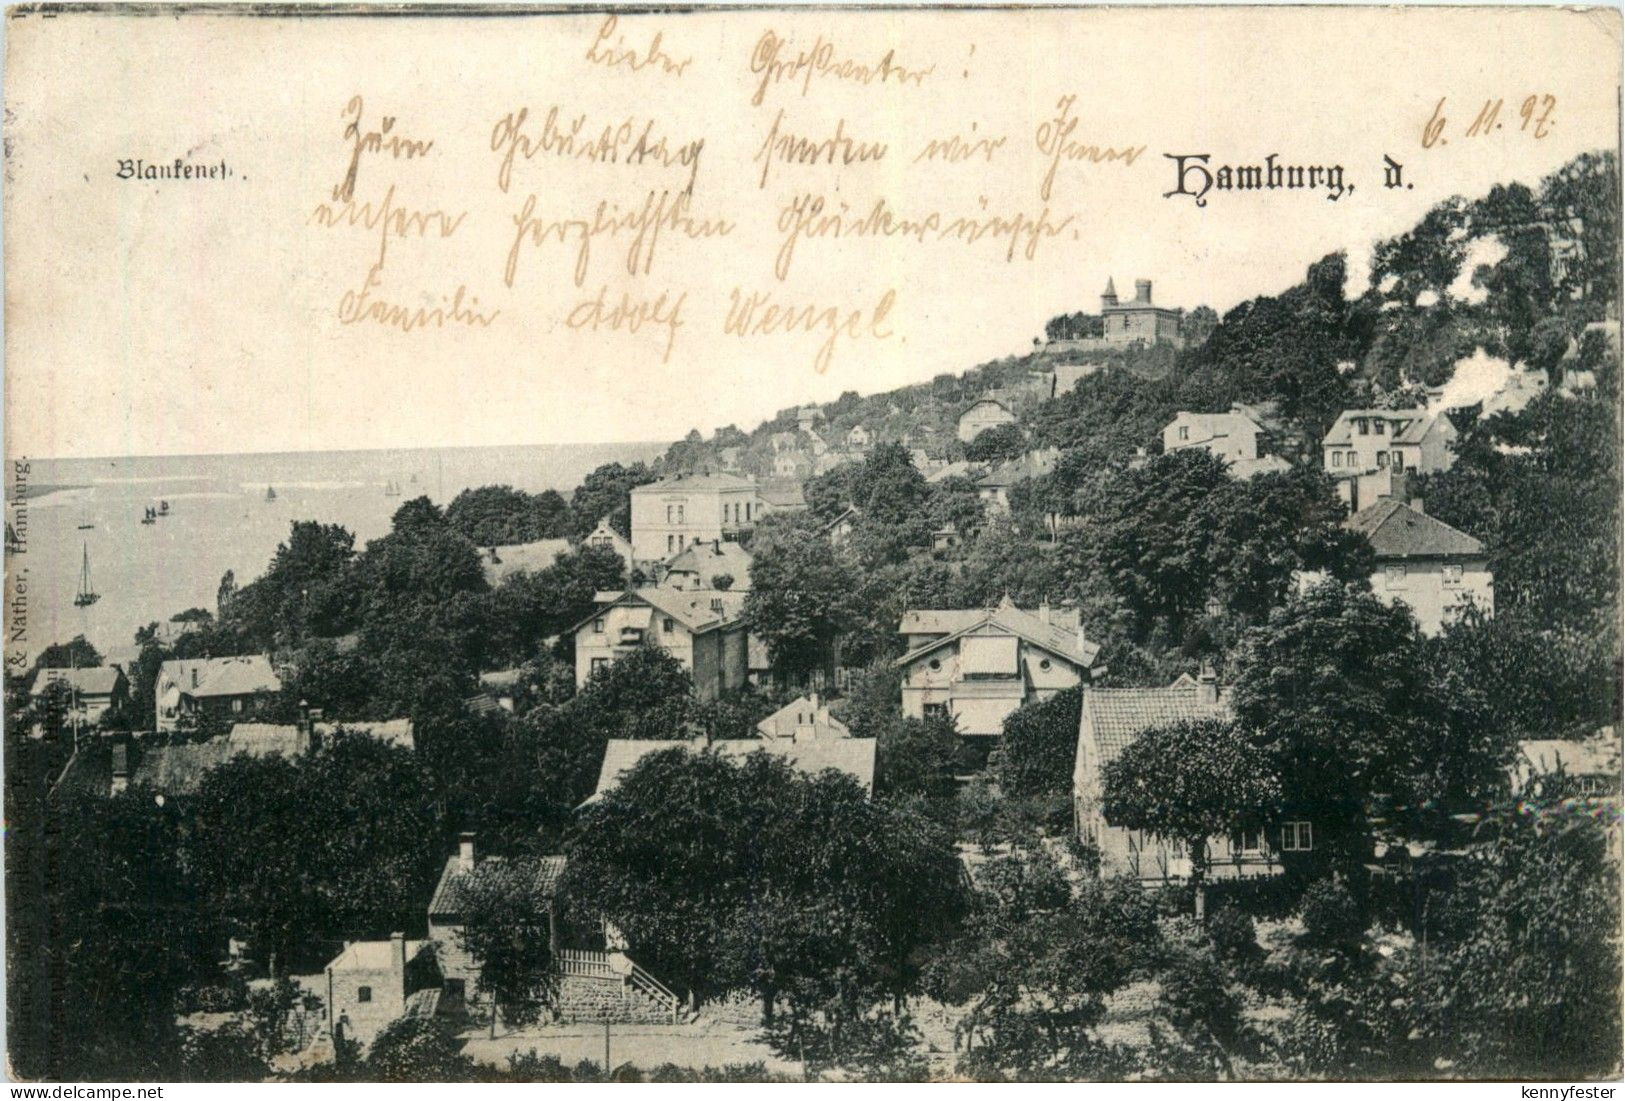 Lieber Großvater!
Zum Geburtstag senden wir Ihnen
unsere herzlichsten Glückwünsche.
Familie Adolf Wenzel.
Blankenes
Hamburg, d. 6.11.97.
& Näther, Hamburg.
delcampe.net
kennyfester